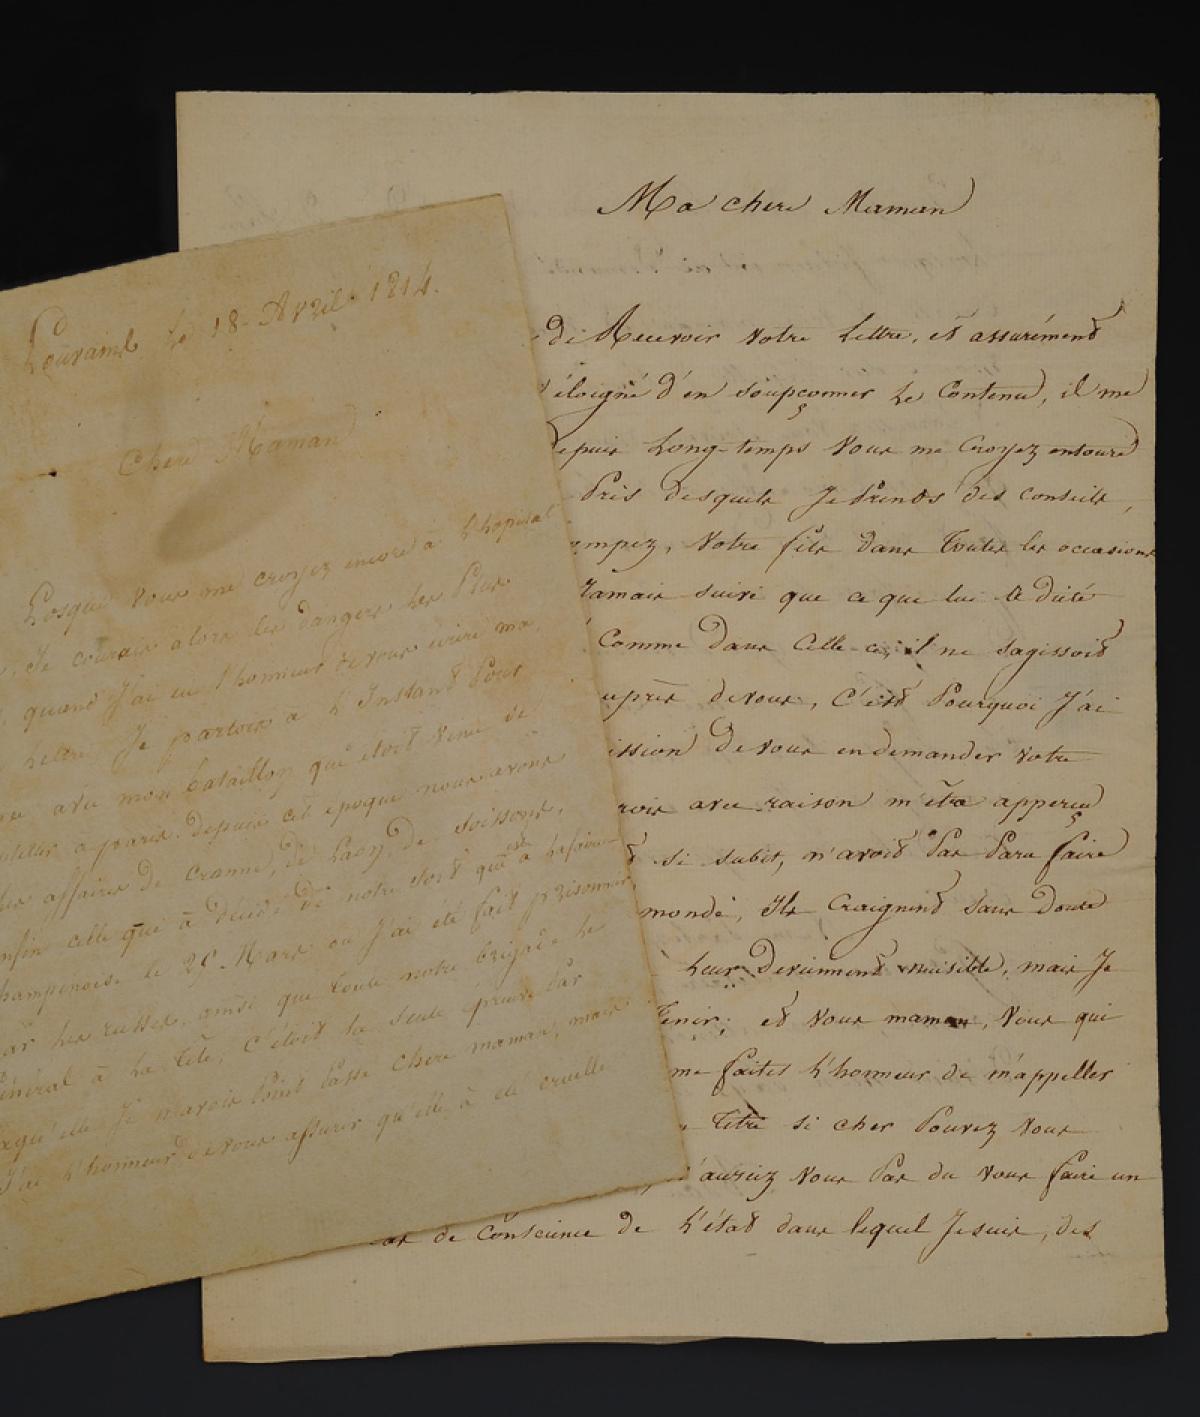 Louvain le 18 Avril 1814.
Chere Maman
Losque vous me croyez encore à l'hopital
Je courais alors les dangers les Plus
quand J'ai eu l'honneur de vous écrire ma
lettre Je partois à l'Instant Pour
avec mon bataillon qui étoit venu de
a paris. depuis cet époque nous avons
les affaires de Cranne, de Laon, de Soissons,
enfin celle que à décidé de notre sort qui est à lafaire
hampenoise le 25 Mars ou J'ai été fait prisonnier
Par les russes, ainsi que toute notre brigade le
énéral à la Tête, c'étoit la seule épreuve Par
laquelle Je n'avois Point Passé chere maman, mais
J'ai l'honneur de vous assurer qu'elle à été cruelle
Ma chere Maman
de Recevoir votre lettre, et assurément
éloigné d'en soupçonner le Contenu, il me
epuis Long-temps vous me Croyez entouré
Pris desquels Je Prends des conseils,
ompez, votre fils dans Toutes les occasions
Jamais suivi que ce que lui a dicté
Comme dans Celle-ci, il ne sagissoit
uprès de vous, C'est Pourquoi J'ai
ission de vous en demander votre
rois avec raison m'être apperçu
si subit, n'avoit Pas Paru faire
monde, Ils Craignent sans Doute
leur deviennent nuisible, mais Je
Tenir; et vous maman, vous qui
me faites l'honneur de m'appeller
Titre si cher Pouvez vous
n'auriez vous Pas du vous faire un
as de Conscience de l'état dans lequel Je suis, des